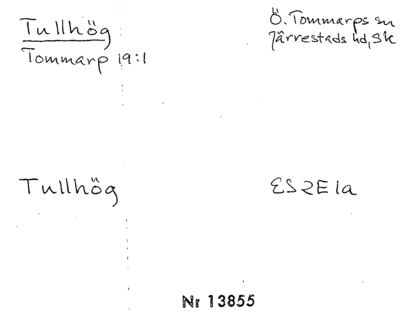 Tullhög
Ö. Tommarps sn
Tommarp 19:1
Järrestads hd, Sk
Tullhög
ES2E1a
Nr 13855